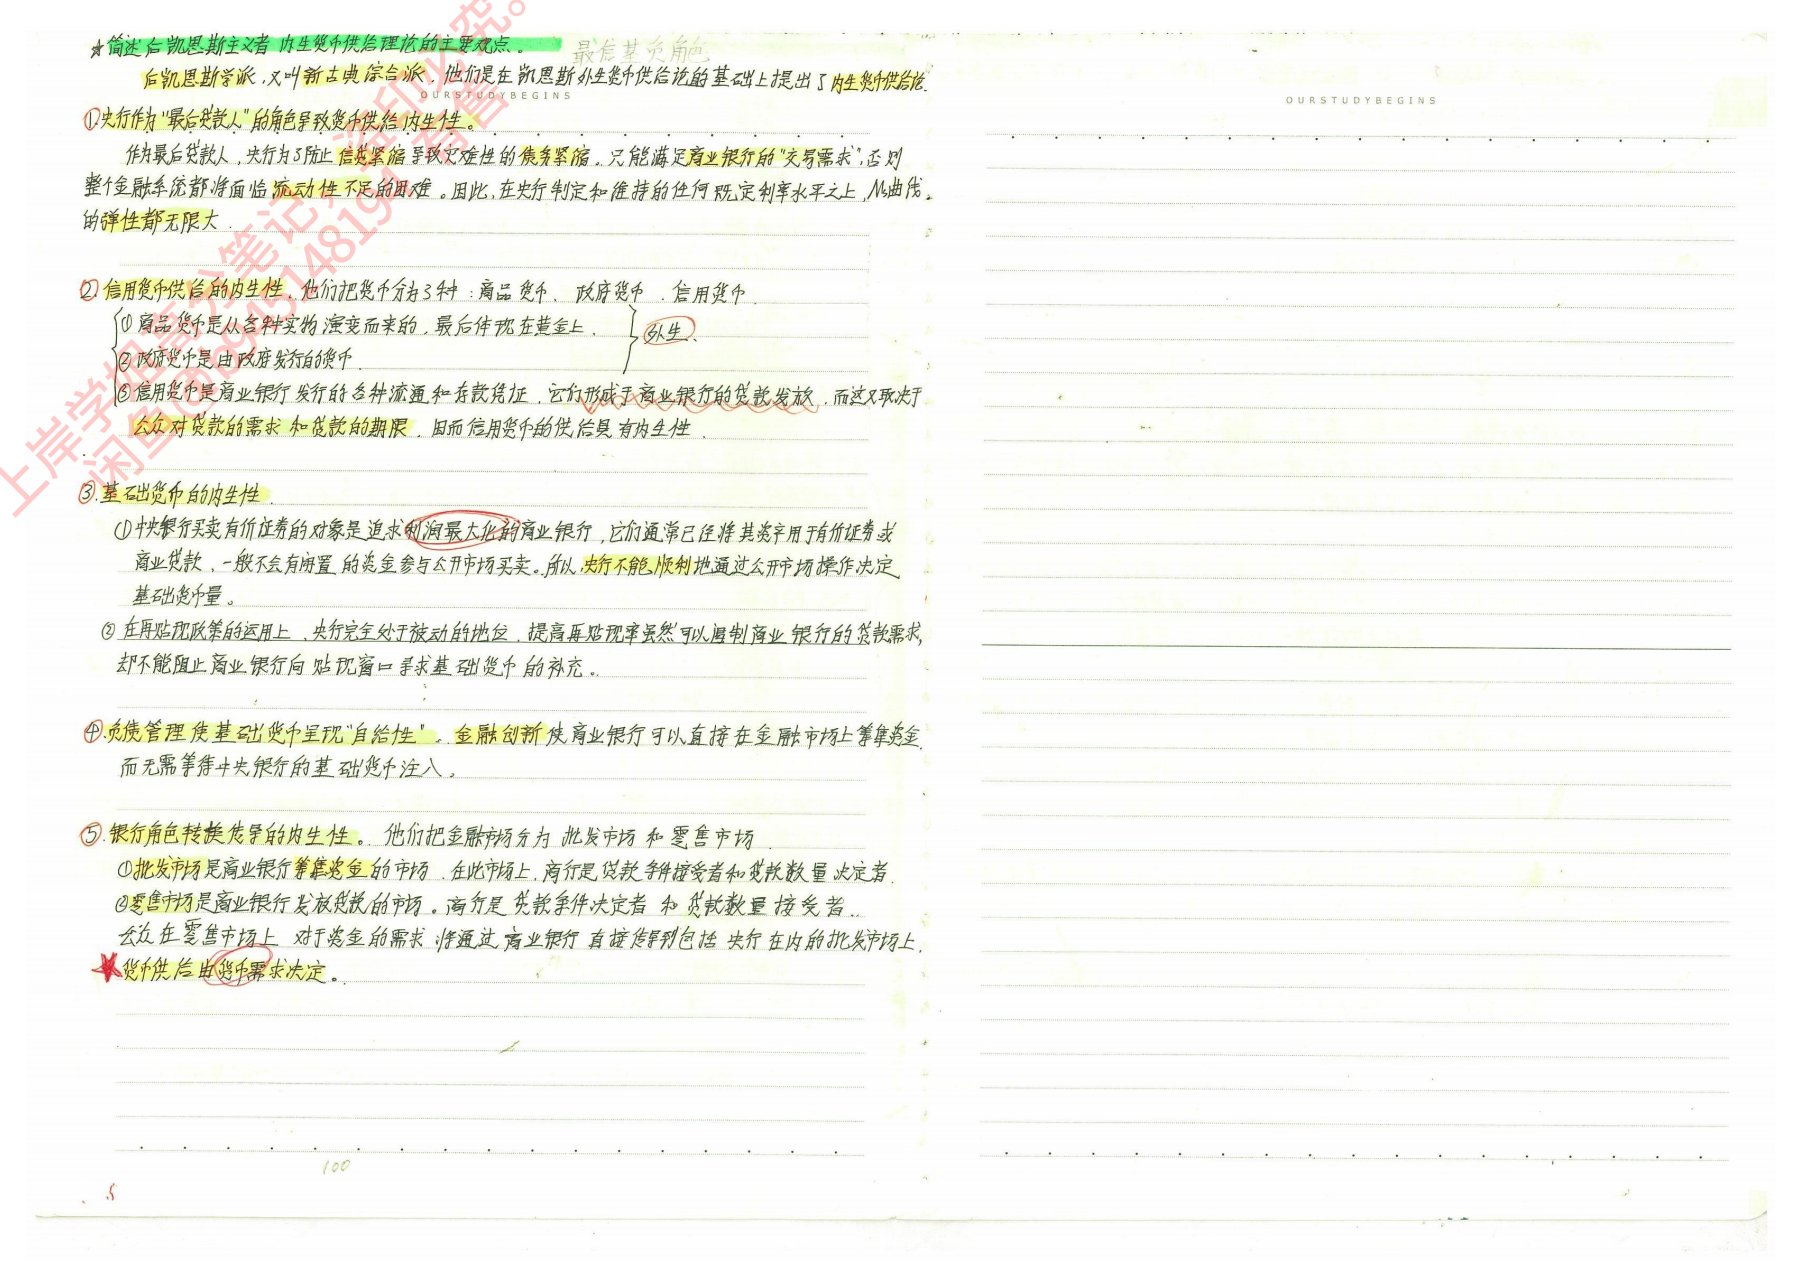 ☆简述后凯恩斯主义者内生货币供给理论的主要观点。
最信基负角色
后凯恩斯学派,又叫新古典综合派,他们是在凯恩斯外生货币供给论的基础上提出了内生货币供给论.
OURSTUDYBEGINS
①央行作为"最后贷款人"的角色导致货币供给内生性。
作为最后贷款人,央行为了防止信贷紧缩导致灾难性的债务紧缩。只能满足商业银行的"交易需求",否则
整个金融系统都将面临流动性不足的困难。因此,在央行制定和维持的任何既定利率水平之上,Ms曲线
的弹性都无限大.
②.信用货币供给的内生性.他们把货币分为3种:商品货币、政府货币、信用货币.
①商品货币是从各种实物演变而来的,最后体现在黄金上.
外生.
②政府货币是由政府发行的货币.
③信用货币是商业银行发行的各种流通和存款凭证,它们形成于商业银行的贷款发放,而这又取决于
公众对贷款的需求和贷款的期限,因而信用货币的供给具有内生性.
③.基础货币的内生性.
①中央银行买卖有价证券的对象是追求利润最大化的商业银行,它们通常已经将其资产用于有价证券或
商业贷款,一般不会有闲置的资金参与公开市场买卖。所以央行不能顺利地通过公开市场操作决定
基础货币量。
②在再贴现政策的运用上,央行完全处于被动的地位,提高再贴现率虽然可以遏制商业银行的贷款需求,
却不能阻止商业银行向贴现窗口寻求基础货币的补充。
④.负债管理使基础货币呈现"自给性"。金融创新使商业银行可以直接在金融市场上筹集资金.
而无需等待中央银行的基础货币注入。
⑤.银行角色转换传导的内生性。他们把金融市场分为批发市场和零售市场.
①批发市场是商业银行筹集资金的市场.在此市场上,商行是贷款条件接受者和贷款数量决定者.
②零售市场是商业银行发放贷款的市场。商行是贷款条件决定者和贷款数量接受者.
公众在零售市场上对于资金的需求将通过商业银行直接传导到包括央行在内的批发市场上.
★货币供给由货币需求决定。
100
OURSTUDYBEGINS